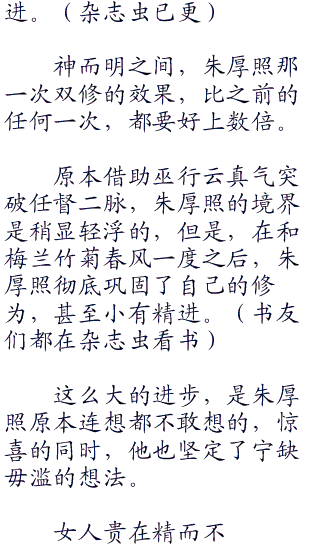 进。（杂志虫已更）
神而明之间，朱厚照那
一次双修的效果，比之前的
任何一次，都要好上数倍。
原本借助巫行云真气突
破任督二脉，朱厚照的境界
是稍显轻浮的，但是，在和
梅兰竹菊春风一度之后，朱
厚照彻底巩固了自己的修
为，甚至小有精进。（书友
们都在杂志虫看书）
这么大的进步，是朱厚
照原本连想都不敢想的，惊
喜的同时，他也坚定了宁缺
毋滥的想法。
女人贵在精而不